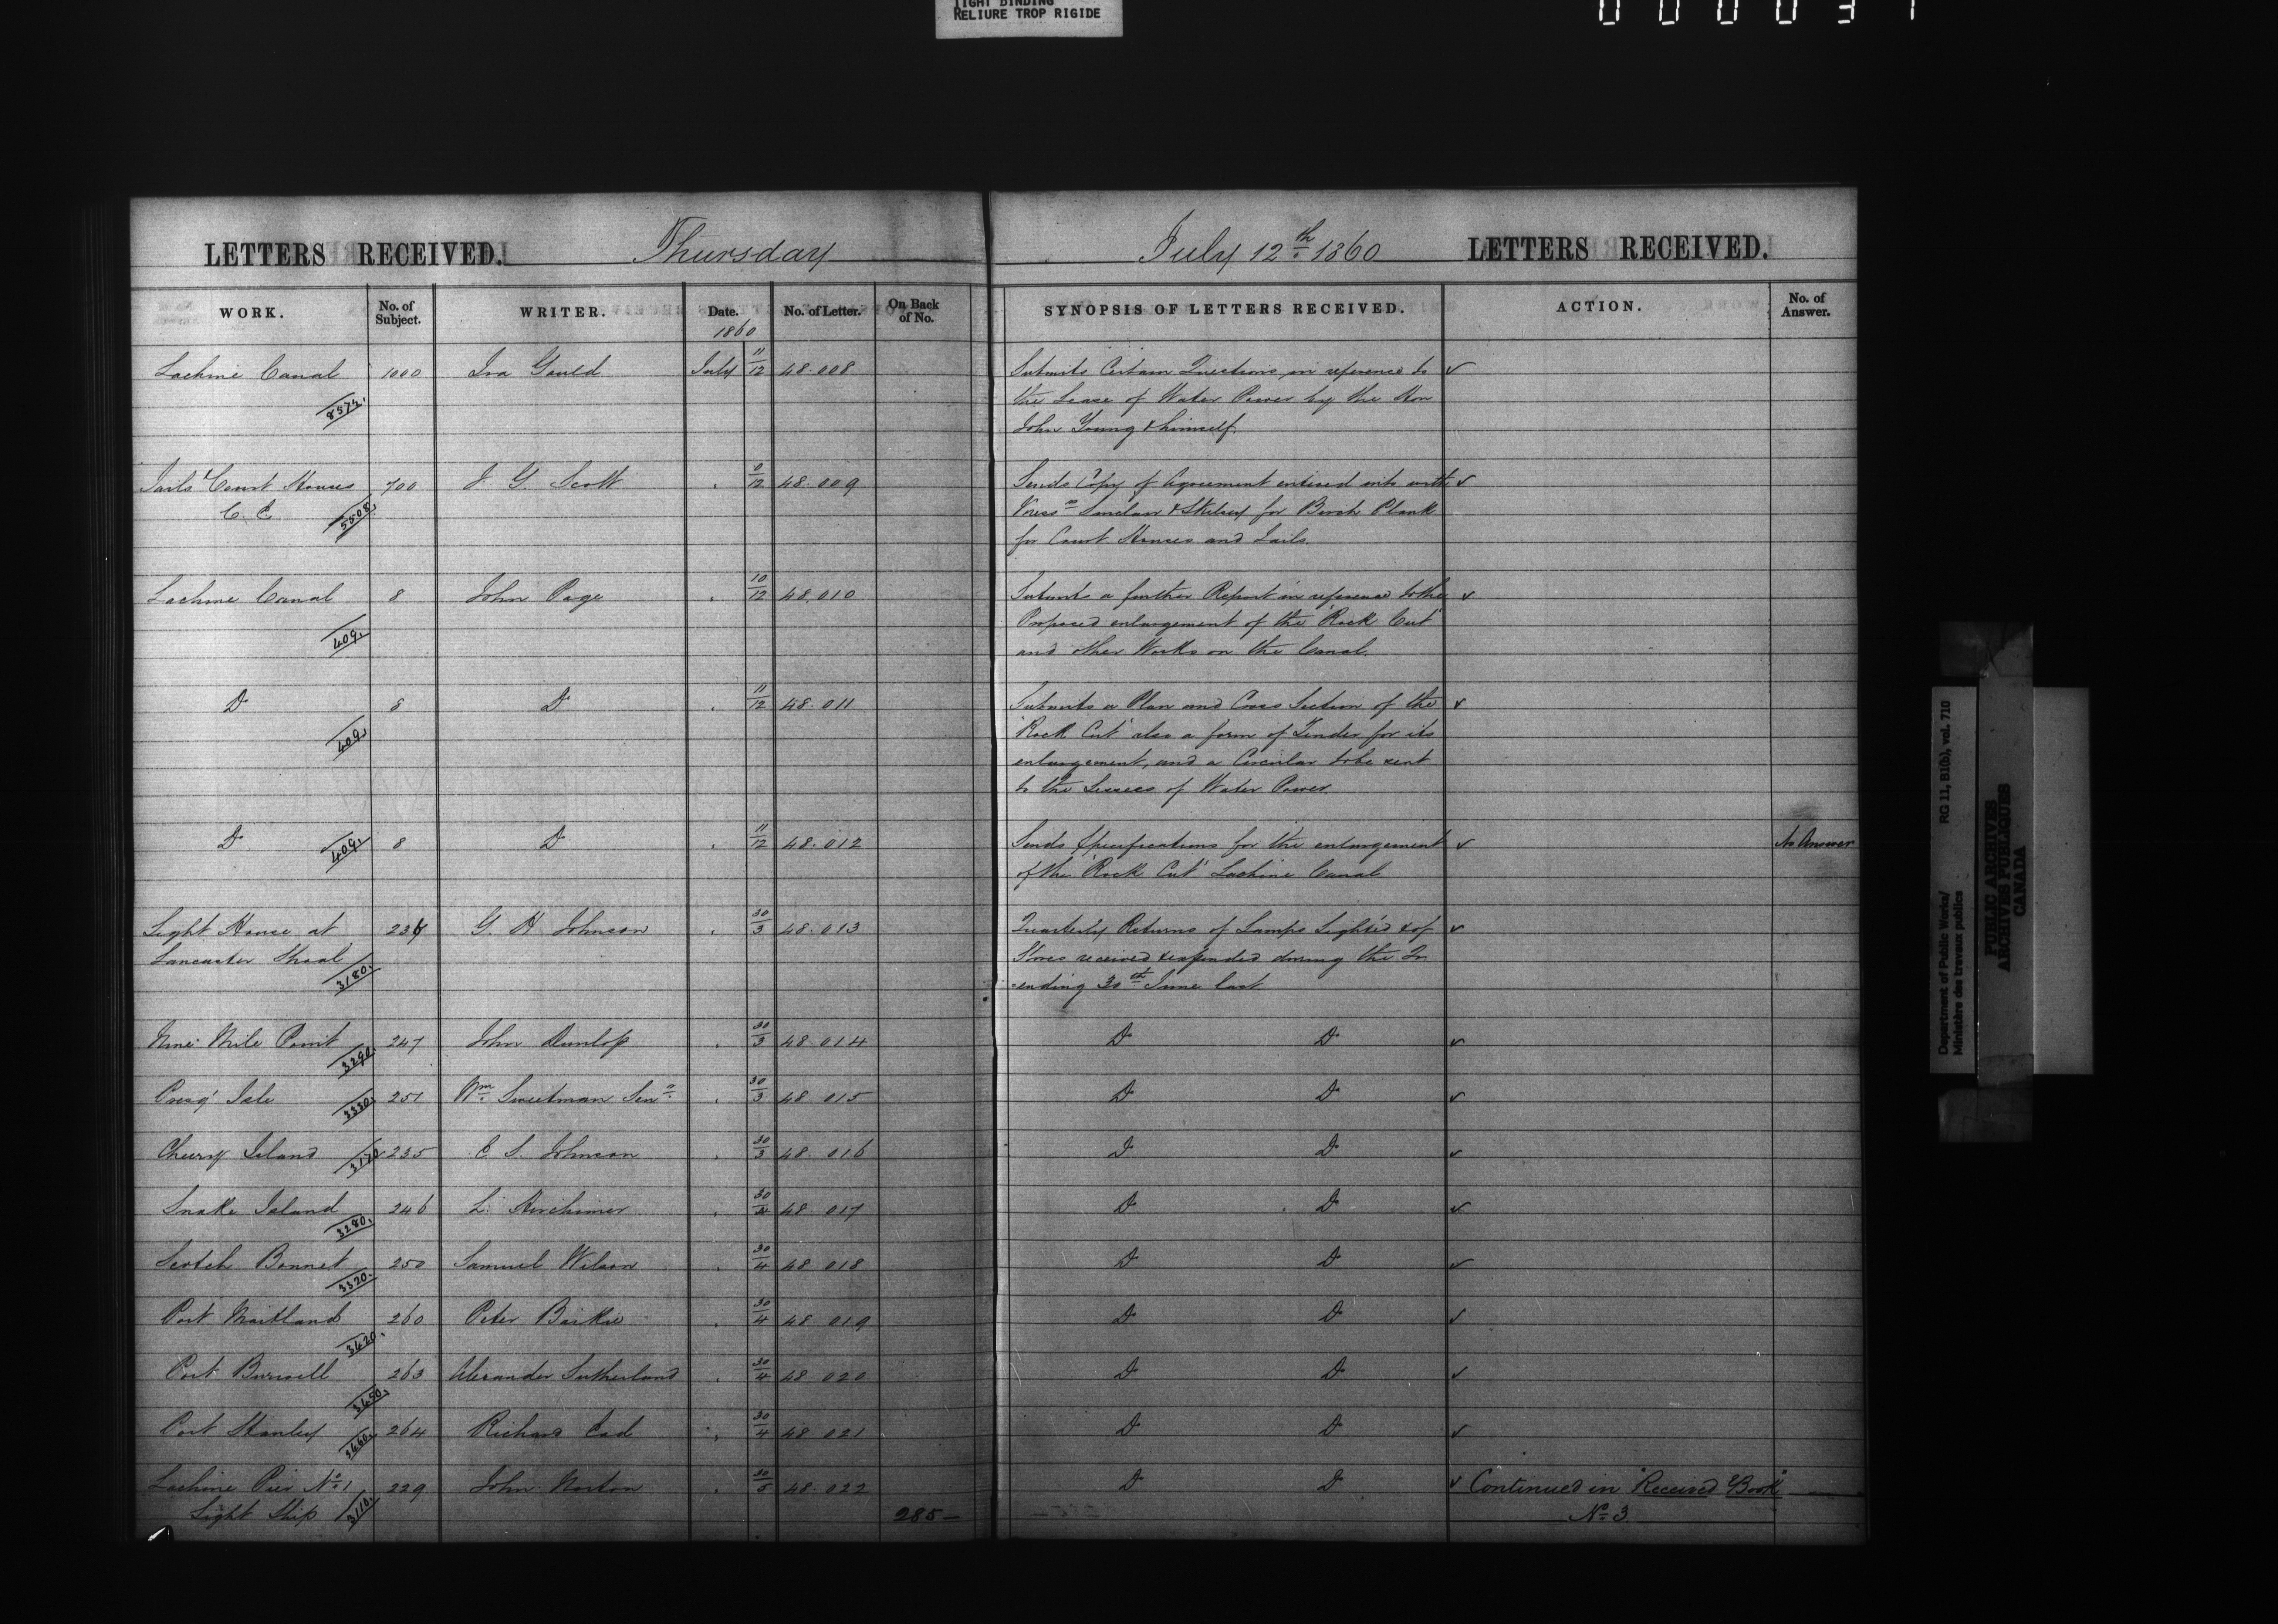 TIGHT BINDING
RELIURE TROP RIGIDE
LETTERS RECEIVED. Thursday July 12th 1860 LETTERS RECEIVED.
WORK. No. of Subject. WRITER. Date. 1860 No. of Letter. On Back of No. SYNOPSIS OF LETTERS RECEIVED. ACTION. No. of Answer.
Lachine Canal 1000 Ira Gould July 11/12 48.008 Submits Certain Questions in reference to ✓
8572. the Lease of Water Power by the Hon
John Young & himself.
Jails & Court Houses 700 J. G. Scott " 9/12 48.009 Sends Copy of Agreement entered into with ✓
C. E. 5508. Messrs Sinclair & Skelsey for Birch Plank
for Court Houses and Jails.
Lachine Canal 8 John Page " 10/12 48.010 Submits a further Report in reference to the ✓
409. Proposed enlargement of the "Rock Cut"
and other Works on the Canal.
Do 8 Do " 11/12 48.011 Submits a Plan and Cross Section of the ✓
409. "Rock Cut" also a form of Tender for its
enlargement, and a Circular to be sent
to the Lessees of Water Power.
Do 409. 8 Do " 11/12 48.012 Sends Specifications for the enlargement ✓ No Answer
of the "Rock Cut" Lachine Canal
Light House at 234 G. H. Johnson " 30/3 48.013 Quarterly Returns of Lamps Lighted & of ✓
Lancaster Shoal 3180. Stores received & expended during the Qr
ending 30th June last
Nine Mile Point 3290. 247 John Dunlop " 30/3 48.014 Do Do ✓
Presq' Isle 3330. 251 Wm Sweetman Senr " 30/3 48.015 Do Do ✓
Cherry Island 3170 235 C. S. Johnson " 30/3 48.016 Do Do ✓
Snake Island 3280. 246 L. Herchimer " 30/4 48.017 Do Do ✓
Scotch Bonnet 3320. 250 Samuel Wilson " 30/4 48.018 Do Do ✓
Port Maitland 3420. 260 Peter Baikie " 30/4 48.019 Do Do ✓
Port Burwell 3450. 263 Alexander Sutherland " 30/4 48.020 Do Do ✓
Port Stanley 3460. 264 Richard " 30/4 48.021 Do Do ✓
Lachine Pier No. 1 229 John Norton " 30/5 48.022 Do Do ✓ Continued in "Received Book"
Light Ship 3110. 285— No. 3
Department of Public Works/ RG 11, B1(b), vol. 710
Ministère des travaux publics
PUBLIC ARCHIVES
ARCHIVES PUBLIQUES
CANADA